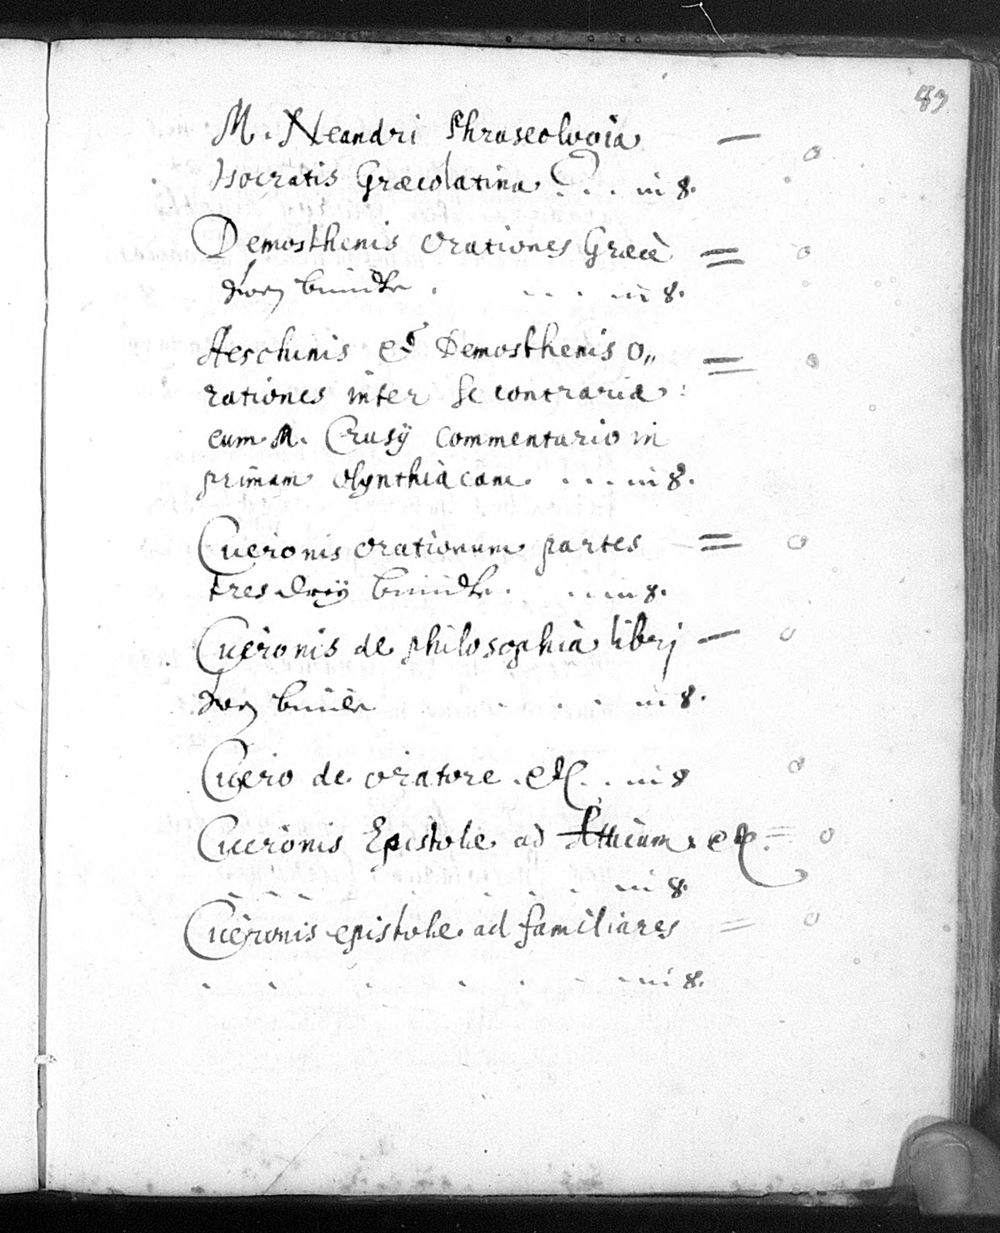 83
M. Neandri Phraseologia — o
Isocratis Græcolatina . . . in 8.
Demosthenis Orationes Græcè = o
Zwey bünde . . . . in 8.
Aeschinis et Demosthenis o„ = o
rationes inter se contrariæ :
cum M. Crusÿ Commentario in
primam Olynthiacam . . . in 8.
Ciceronis orationum partes = o
tres dreÿ bünde . . . in 8.
Ciceronis de philosophia librj — o
Zwey bünde . . . in 8.
Cicero de oratore . etc . . in 8 o
Ciceronis Epistolæ ad Atticum . etc . = o
. . . . . . . in 8.
Ciceronis epistolæ ad familiares = o
. . . . . . in 8.